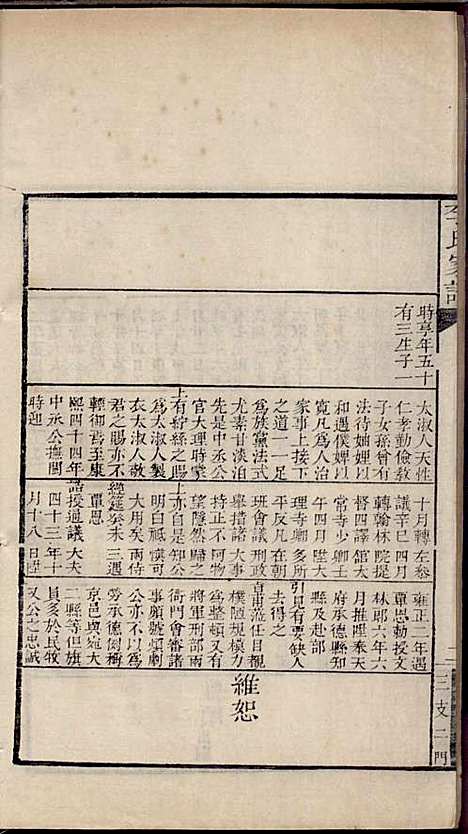 李氏家譜
三支二門
時享年五十
有三生子一
太淑人天性
仁孝勤儉教
子女孫曾有
法待妯娌以
和遇僕婢以
寬凡為人治
家事上接下
之道一一足
為族黨法式
尤素甘淡泊
先是中丞公
官大理時蒙
上有紵絲之賜
為太淑人製
衣太淑人敬
君之賜亦不
輕御焉至康
熙四十四年
中丞公撫閩
時迎
十月轉左參
議辛巳四月
轉翰林院提
督四譯館太
常寺少卿壬
午四月陞大
理寺卿多所
平反凡在朝
班會議刑政
舉措諸大事
持正不阿物
望隱然歸之
上亦自是知公
明白祗慎可
大用矣兩侍
經筵癸未三遇
覃恩
誥授通議大夫
四十三年十
月十八日陞
雍正二年遇
覃恩勅授文
林郎六年六
月推陞奉天
府承德縣知
縣及赴部
引見有要缺人
去得之
旨甫蒞任日覩
樸陋規模力
將軍刑部兩
衙門會審諸
事頗號煩劇
亦公不以為
勞承德倒樹
京邑與宛大
二縣等但旗
員多於民牧
又公之忠誠
維恕